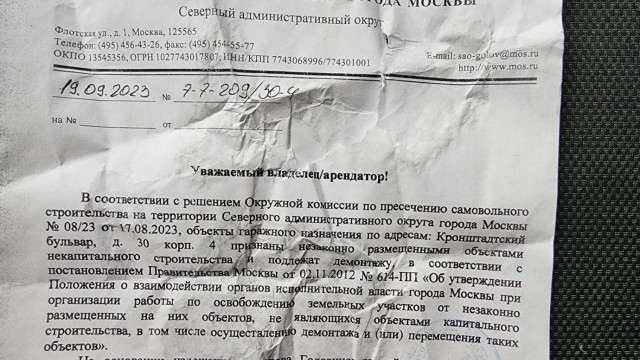 ГОРОДА МОСКВЫ
Северный административный округ
Флотская ул., 1, Москва, 125565
Телефон: (495) 456-43-26, факс: (495) 454-55-77
ОКПО 13545356, ОГРН 1027743017807, ИНН/КПП 7743068996/774301001
E-mail: sao-golov@mos.ru
http://www.mos.ru
19.09.2023 № 7-7-209/30-4
на № от
Уважаемый владелец/арендатор!
В соответствии с решением Окружной комиссии по пресечению самовольного
строительства на территории Северного административного округа города Москвы
№ 08/23 от 17.08.2023, объекты гаражного назначения по адресам: Кронштадтский
бульвар, д. 30 корп. 4 признаны незаконно размещенными объектами
некапитального строительства и подлежат демонтажу в соответствии с
постановлением Правительства Москвы от 02.11.2012 № 614-ПП «Об утверждении
Положения о взаимодействии органов исполнительной власти города Москвы при
организации работы по освобождению земельных участков от незаконно
размещенных на них объектов, не являющихся объектами капитального
строительства, в том числе осуществлению демонтажа и (или) перемещения таких
объектов».